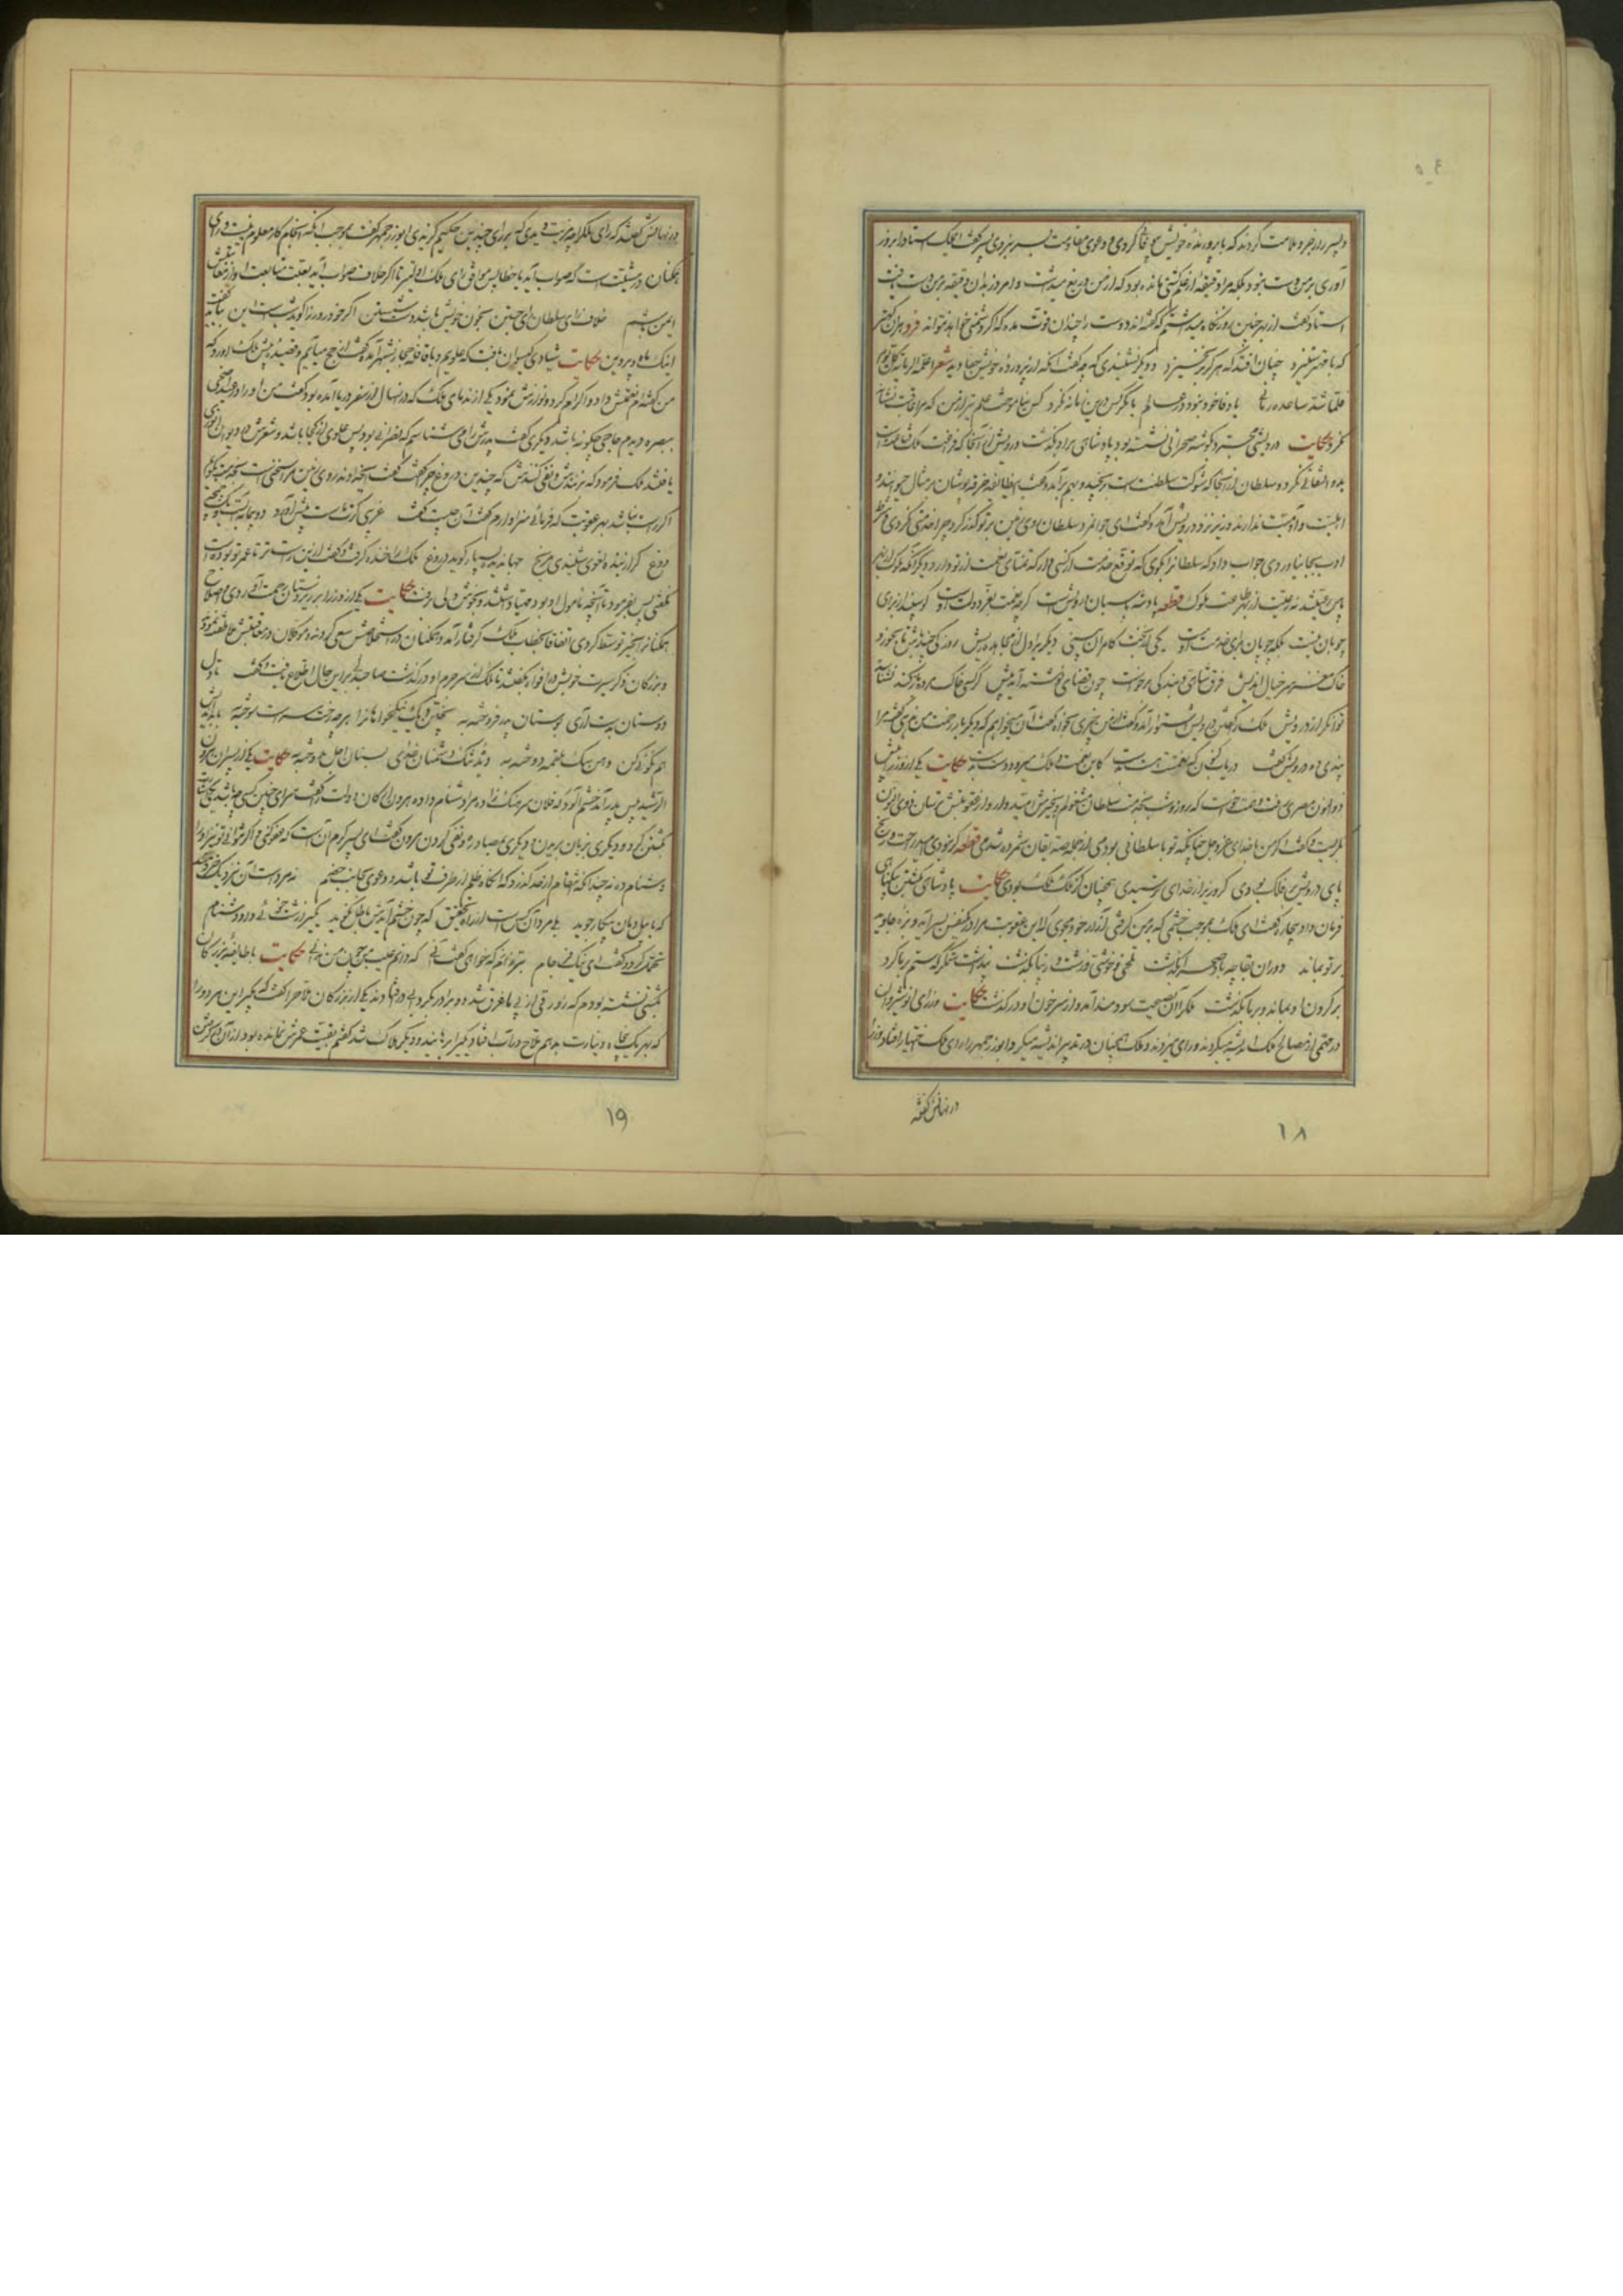 و پسر را زجر و ملامت کردند که با پرورنده خویش بیوفائی کردی و دعوی مقاومت بسر نبردی پسر گفت ای ملک استاد بزور
آوری بر من دست نبود بلکه مرا دقیقه از علم کشتی مانده بود که از من دریغ میداشت و امروز بدان دقیقه بر من دست یافت
استاد گفت از بهر چنین روز نگاه میداشتم که گفته اند دوست را چندان قوت مده که اگر دشمنی خواهد تواند
با کس درین زمانه نکرد کس نیاموخت علم تیر از من که مرا عاقبت نشانه
نکرد حکایت درویشی مجرد بگوشه صحرائی نشسته بود پادشاهی بر او بگذشت درویش از آنجا که فراغت ملک قناعت است
بدو التفاتی نکرد و سلطان از آنجا که شوکت سلطنت است برنجید و بهم برآمد و گفت این طایفه خرقه پوشان بر مثال حیوانند و
اهلیت و آدمیت ندارند وزیر نزد درویش آمد و گفت ای جوانمرد سلطان روی زمین بر تو گذر کرد چرا خدمتی نکردی و شرط
ادب بجا نیاوردی جواب داد که سلطان را بگوی که توقع خدمت از کسی دار که تمنای نعمت از تو دارد و دیگر آنکه ملوک از بهر
پاس رعیتند نه رعیت از بهر طاعت ملوک قطعه پادشه پاسبان درویش است گرچه نعمت بفر دولت اوست گوسفند از برای
چوپان نیست بلکه چوپان برای خدمت اوست یکی امروز کامران بینی دیگری را دل از مجاهده ریش روزکی چند باش تا بخورد
خاک مغز سر خیال اندیش فرق شاهی و بندگی برخاست چون قضای نوشته آمد پیش گر کسی خاک مرده باز کند نشناسد
توانگر از درویش ملک را گفتن درویش استوار آمد و گفت از من چیزی بخواه گفت آن میخواهم که دیگر بار زحمت من ندهی گفت مرا
پندی ده درویش گفت دریاب کنون که نعمتت هست بدست کاین نعمت و ملک میرود دست بدست حکایت یکی از وزرا پیش
ذوالنون مصری رفت و همت خواست که روز و شب بخدمت سلطان مشغولم و بخیرش امیدوار و از عقوبتش ترسان ذوالنون
بگریست و گفت اگر من خدای عز و جل چنانکه تو با سلطانی بودمی از جمله صدیقان شمرده شدمی قطعه گر نبودی امید راحت و رنج
پای درویش بر فلک بودی گر وزیر از خدای ترسیدی همچنان کز ملک ملک بودی حکایت پادشاهی بکشتن بیگناهی
فرمان داد بیچاره گفت ای ملک بموجب خشمی که بر من گرفتی آزار خود مجوی کاین عقوبت مرا در یکنفس بسر آید و بزه جاوید
بر تو بماند دوران بقا چو باد صحرا بگذشت تلخی و خوشی و زشت و زیبا بگذشت پنداشت ستمگر که ستم بر ما کرد
بر گردن او بماند و بر ما بگذشت ملک را آن نصیحت سودمند آمد و از سر خون او درگذشت حکایت وزرای انوشیروان
در مهمی از مصالح ملک اندیشه میکردند و رای میزدند و ملک همچنان در تدبیر اندیشه میکرد ابوزرجمهر را رای ملک اختیار افتاد وزرا
در نهانش گفتند
۱۸
در نهانش گفتند که رای ملک را چه مزیت دیدی که بر رای چندین حکیم گزیدی ابوزرجمهر گفت بموجب آنکه انجام کار معلوم نیست و رای
همگنان در مشیت است که صواب آید یا خطا پس موافق رای ملک اولیتر تا اگر خلاف صواب آید بعلت متابعت او از معاتبتش
ایمن باشم خلاف رای سلطان رای جستن بخون خویش باشد دست شستن اگر خود روز را گوید شبست این بباید گفت
اینک ماه و پروین حکایت شیادی گیسوان بافت که علویم و با قافله حجاز بشهر آمد که از حج میآیم و قصیده پیش ملک آورد که
من گفته ام نعمتش داد و اکرام کرد و نوازش نمود یکی از ندمای ملک که در آنسال از سفر دریا آمده بود گفت من او را در عید اضحی
ببصره دیدم حاجی چگونه باشد دیگری گفت پدرش را می شناسم که نصرانی بود پس علوی از کجا باشد و شعرش در دیوان انوری
یافتند ملک فرمود که بزنندش و نفی کنندش که چندین دروغ چرا گفت گفت ای خداوند روی زمین مرا سخنی است بخدمت بگویم
اگر راست نباشد بهر عقوبت که فرمائی سزاوارم گفت آن چیست گفت غریبی گرت ماست پیش آورد دو پیمانه آبست و یک چمچه
دوغ جهاندیده بسیار گوید دروغ ملک را خنده گرفت و گفت ازین راست تر تا عمر تو بوده است
نگفتی پس بفرمود تا آنچه مأمول او بود مهیا داشتند و بخوشدلی برفت حکایت یکی از وزرا بر زیردستان رحمت آوردی و صلاح
همگنان را بخیر توسط کردی اتفاقا بخطاب ملک گرفتار آمد و همگنان در استخلاصش سعی کردند و موکلان در معاقبتش ملاطفت نمودند
و بزرگان ذکر سیرت خوبش در افواه بگفتند تا ملک از سر جرم او درگذشت صاحبدلی بر این حال اطلاع یافت و گفت تا دل
دوستان بدست آری بوستان پدر فروخته به پختن دیگ نیکخواهان را هر چه رخت سراست سوخته به با بداندیش
هم نکوئی کن دهن سگ بلقمه دوخته به حکایت یکی از پسران هارون
الرشید پیش پدر آمد خشم آلوده که فلان سرهنگ زاده مرا دشنام داده هارون ارکان دولت را گفت سزای چنین کسی چه باشد یکی اشارت
بکشتن کرد و دیگری بزبان بریدن و دیگری بمصادره و نفی کردن هارون گفت ای پسر کرم آن است که عفو کنی و اگر نتوانی تو نیز او را
دشنام ده نه چندانکه انتقام از حد گذرد که آنگاه ظلم از طرف تو باشد و دعوی بجانب خصم نه مرد است آن بنزدیک خردمند
که با پیل دمان پیکار جوید بلی مرد آن کس است از راه تحقیق که چون خشم آیدش باطل نگوید یکی را زشت خوئی داد دشنام
تحمل کرد و گفت ای نیک فرجام بتر زانم که خواهی گفت آنی که دانم عیب من چون من ندانی حکایت با طایفه بزرگان
بکشتی نشسته بودم که زورقی از پی ما غرق شد دو برادر بگردابی درافتادند یکی از بزرگان ملاح را گفت بگیر این هر دو را
که بهر یک پنجاه دینارت بدهم ملاح در آب افتاد یکی را برهانید و دیگر هلاک شد گفتم بقیت عمرش نمانده بود از آن در گرفتنش
۱۹